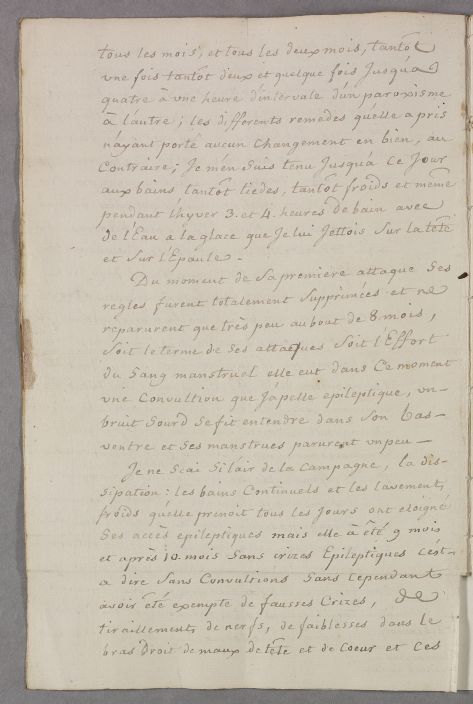 tous les mois, et tous les deux mois, tantot
vne fois tantôt deux et quelque fois Jusqu'a
quatre à vne heure d'intervale d'un paroxisme
à l'autre; les differents remedes qu'elle a pris
n'ayant porté aucun Changement en bien, au
Contraire; Je m'en suis tenu Jusqu'a Ce Jour
aux bains tantôt tiedes, tantôt froids et même
pendant l'hyver 3. et 4. heures de bain avec
de l'Eau a la glace que Je lui Jettois sur la tête
et sur l'Epaule.
Du moment de sa premiere attaque ses
regles furent totalement supprimées et ne
reparurent que très peu au bout de 8 mois,
soit le terme de ses attaques soit l'Effort
du sang manstruel elle eut dans Ce moment
vne Convultion que J'apelle epileptique, vn
bruit sourd se fit entendre dans son bas-
ventre et ses manstrues parurent vn peu —
Je ne scai si l'air de la Campagne, la dis-
sipation: les bains Continuels et les lavements
froids qu'elle prenoit tous les Jours ont eloigné
ses accès epileptiques mais elle à été 9 mois
et après 10 mois sans crizes Epileptiques C'est-
a dire sans Convultions sans Cependant
avoir été exempte de fausses Crizes, de
tiraillements de nerfs, de faiblesses dans le
bras droit de maux de tête et de Coeur et Ces